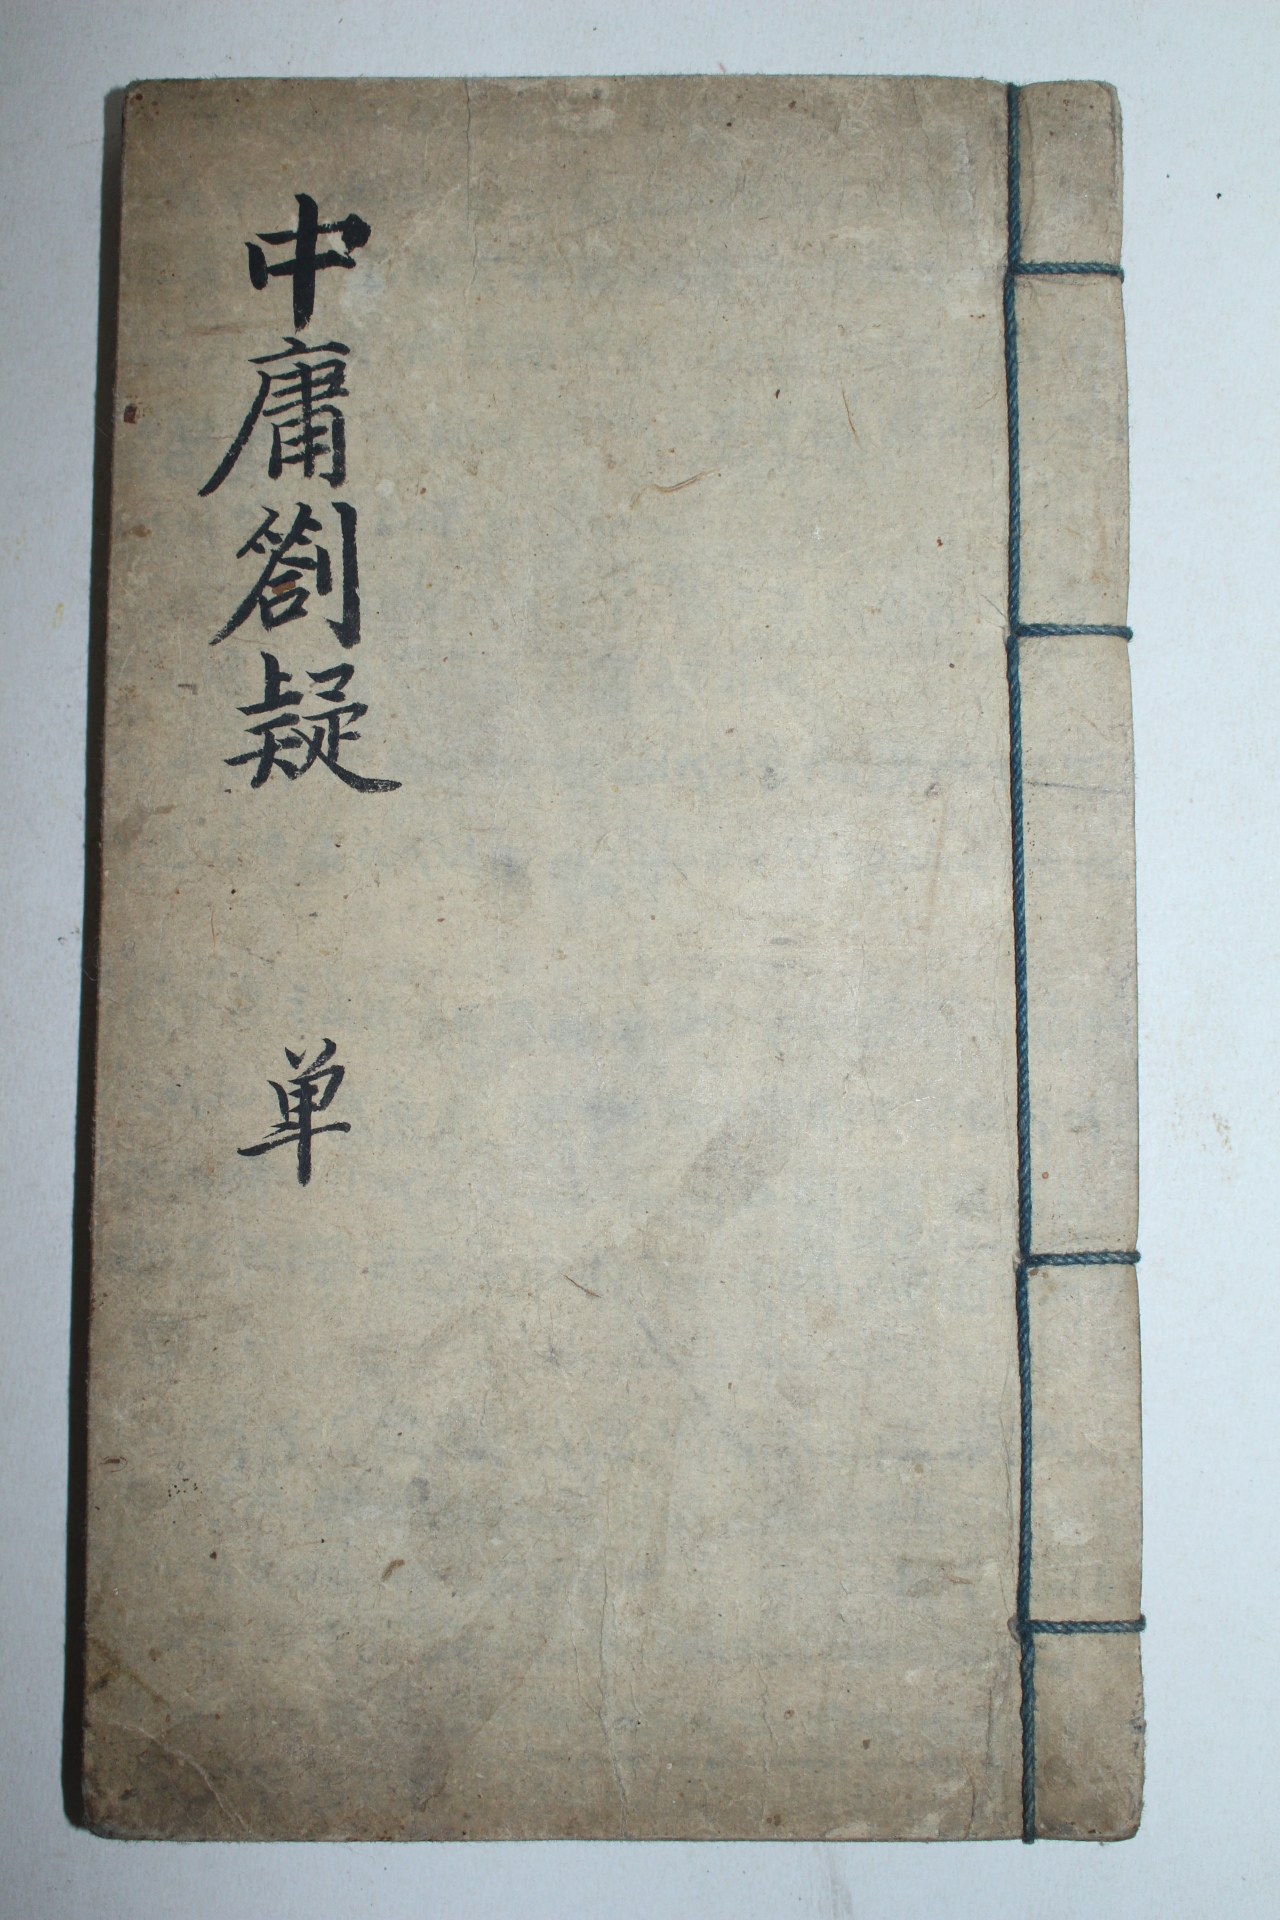 中庸劄疑
单